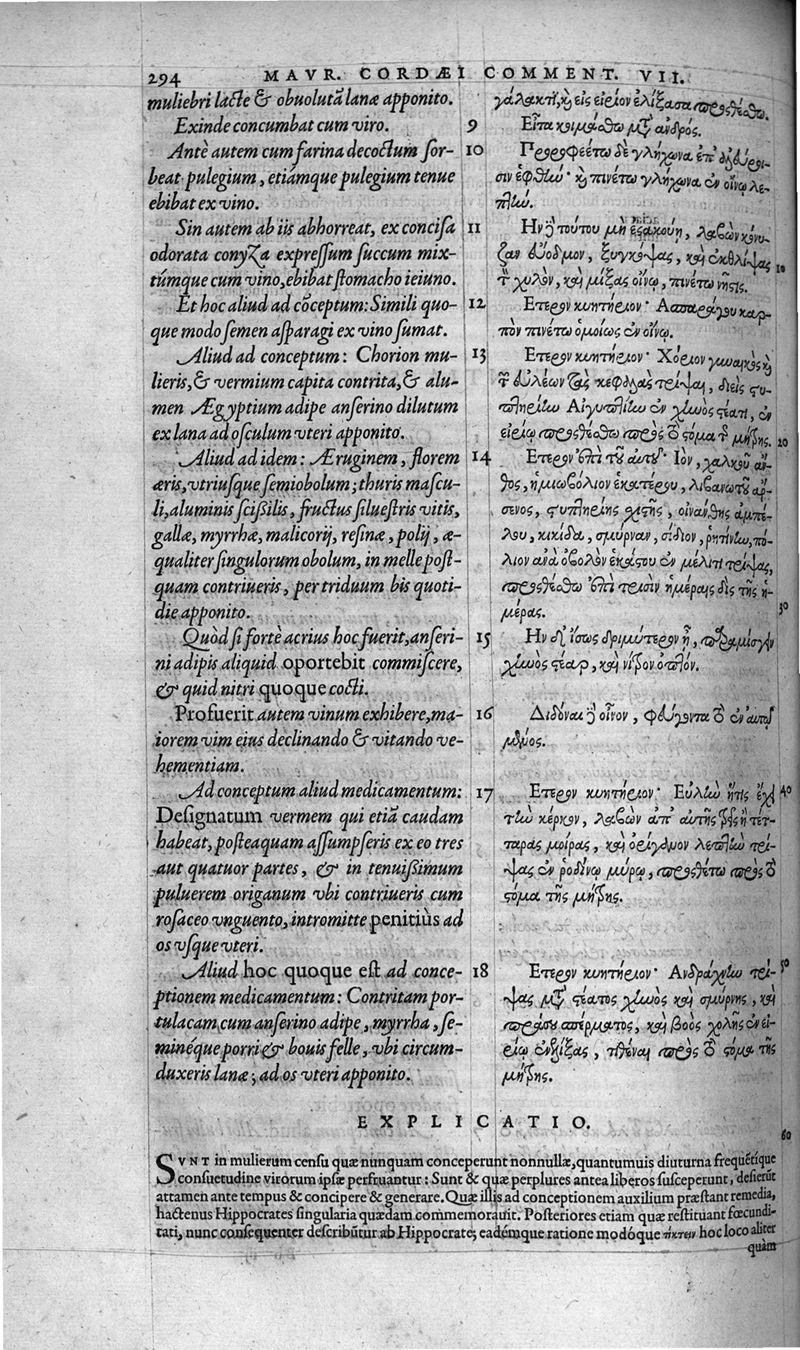 294 MAVR. CORDÆI COMMENT. VII.
muliebri lacte & obuolutâ lanæ apponito.
Exinde concumbat cum viro.
Antè autem cum farina decoctum sor-
beat pulegium, etiámque pulegium tenue
ebibat ex vino.
Sin autem ab iis abhorreat, ex concisa
odorata conyza expressum succum mix-
túmque cum vino, ebibat stomacho ieiuno.
Et hoc aliud ad cōceptum: Simili quo-
que modo semen asparagi ex vino sumat.
Aliud ad conceptum: Chorion mu-
lieris, & vermium capita contrita, & alu-
men Ægyptium adipe anserino dilutum
ex lana ad osculum vteri apponito.
Aliud ad idem: Æruginem, florem
æris, vtriusque semiobolum; thuris mascu-
li, aluminis scißilis, fructus siluestris vitis,
gallæ, myrrhæ, malicorij, resinæ, polij, æ-
qualiter singulorum obolum, in melle post-
quam contriueris, per triduum bis quoti-
die apponito.
Quòd si fortè acrius hoc fuerit, anseri-
ni adipis aliquid oportebit commiscere,
& quid nitri quoque cocti.
Profuerit autem vinum exhibere, ma-
iorem vim eius declinando & vitando ve-
hementiam.
Ad conceptum aliud medicamentum:
Designatum vermem qui etiā caudam
habeat, posteaquam assumpseris ex eo tres
aut quatuor partes, & in tenuißimum
puluerem origanum vbi contriueris cum
rosaceo vnguento, intromitte penitiùs ad
os vsque vteri.
Aliud hoc quoque est ad conce-
ptionem medicamentum: Contritam por-
tulacam cum anserino adipe, myrrha, se-
minéque porri & bouis felle, vbi circum-
duxeris lanæ; ad os vteri apponito.
γάλακτι, καὶ εἰς εἰρίον ἐλίξασα προσθέσθω.
9 Εἶτα κοιμάσθω μετ' ἀνδρός.
10 Προροφεέτω δὲ γλήχωνα ἐπ' ἀλφίτοι-
σιν ἑφθὴν· καὶ πινέτω γλήχωνα ἐν οἴνῳ λε-
πτήν.
11 Ην δὲ τούτου μὴ ἐσακούῃ, λαβὼν κόνυ-
ζαν εὔοδμον, ξυγκόψας, καὶ ἐκθλίψας 10
τὸν χυλὸν, καὶ μίξας οἴνῳ, πινέτω νῆστις.
12 Ετερον κυητήριον· Ασπαράγου καρ-
πὸν πινέτω ὁμοίως ἐν οἴνῳ.
13 Ετερον κυητήριον· Χόριον γυναικὸς καὶ
τῶν εὐλέων τὰς κεφαλὰς τρίψαι, διεὶς στυ-
πτηρίην Αἰγυπτίην ἐν χηνὸς στέατι, ἐν
εἰρίῳ προσθέσθω πρὸς τὸ στόμα τῆς μήτρης. 20
14 Ετερον ἐπὶ τοῦ αὐτοῦ· Ιὸν, χαλκοῦ ἄν-
θος, ἡμιωβόλιον ἑκατέρου, λιβανωτοῦ ἄρ-
σενος, στυπτηρίης σχιστῆς, οἰνάνθης ἀμπέ-
λου, κικίδα, σμύρναν, σίδιον, ῥητίνην, πό-
λιον ἀνὰ ὀβολὸν ἑκάστου ἐν μέλιτι τρίψας,
προσθέσθω ἐπὶ τρισὶν ἡμέραις δὶς τῆς ἡ-
μέρας. 30
15 Ην δ' ἴσως δριμύτερον ᾖ, παραμίσγειν
χηνὸς στέαρ, καὶ νίτρον ὀπτόν.
16 Διδόναι δὲ οἶνον, φεύγοντα τὸ ἐν αὐτῷ
μένος.
17 Ετερον κυητήριον· Εὐλὴν ἥτις ἔχει 40
τὴν κέρκον, λαβὼν ἀπ' αὐτῆς τρεῖς ἢ τέτ-
ταρας μοίρας, καὶ ὀρίγανον λεπτὴν τρί-
ψας ἐν ῥοδίνῳ μύρῳ, προσθέτω πρὸς τὸ
στόμα τῆς μήτρης.
18 Ετερον κυητήριον· Ανδράχνην τρί- 50
ψας μετὰ στέατος χηνὸς καὶ σμύρνης, καὶ
πράσου σπέρματος, καὶ βοὸς χολῆς ἐν εἰ-
ρίῳ ἐνελίξας, τιθέναι πρὸς τὸ στόμα τῆς
μήτρης.
EXPLICATIO.
60
SVNT in mulierum censu quæ nunquam conceperunt nonnullæ, quantumuis diuturna frequētique
consuetudine virorum ipsæ perfruantur: Sunt & quæ perplures antea liberos susceperunt, desierūt
attamen ante tempus & concipere & generare. Quæ illis ad conceptionem auxilium præstant remedia,
hactenus Hippocrates singularia quædam commemorauit. Posteriores etiam quæ restituant fœcundi-
tati, nunc consequenter describūtur ab Hippocrate; eadémque ratione modóque τίκτειν hoc loco aliter
quàm